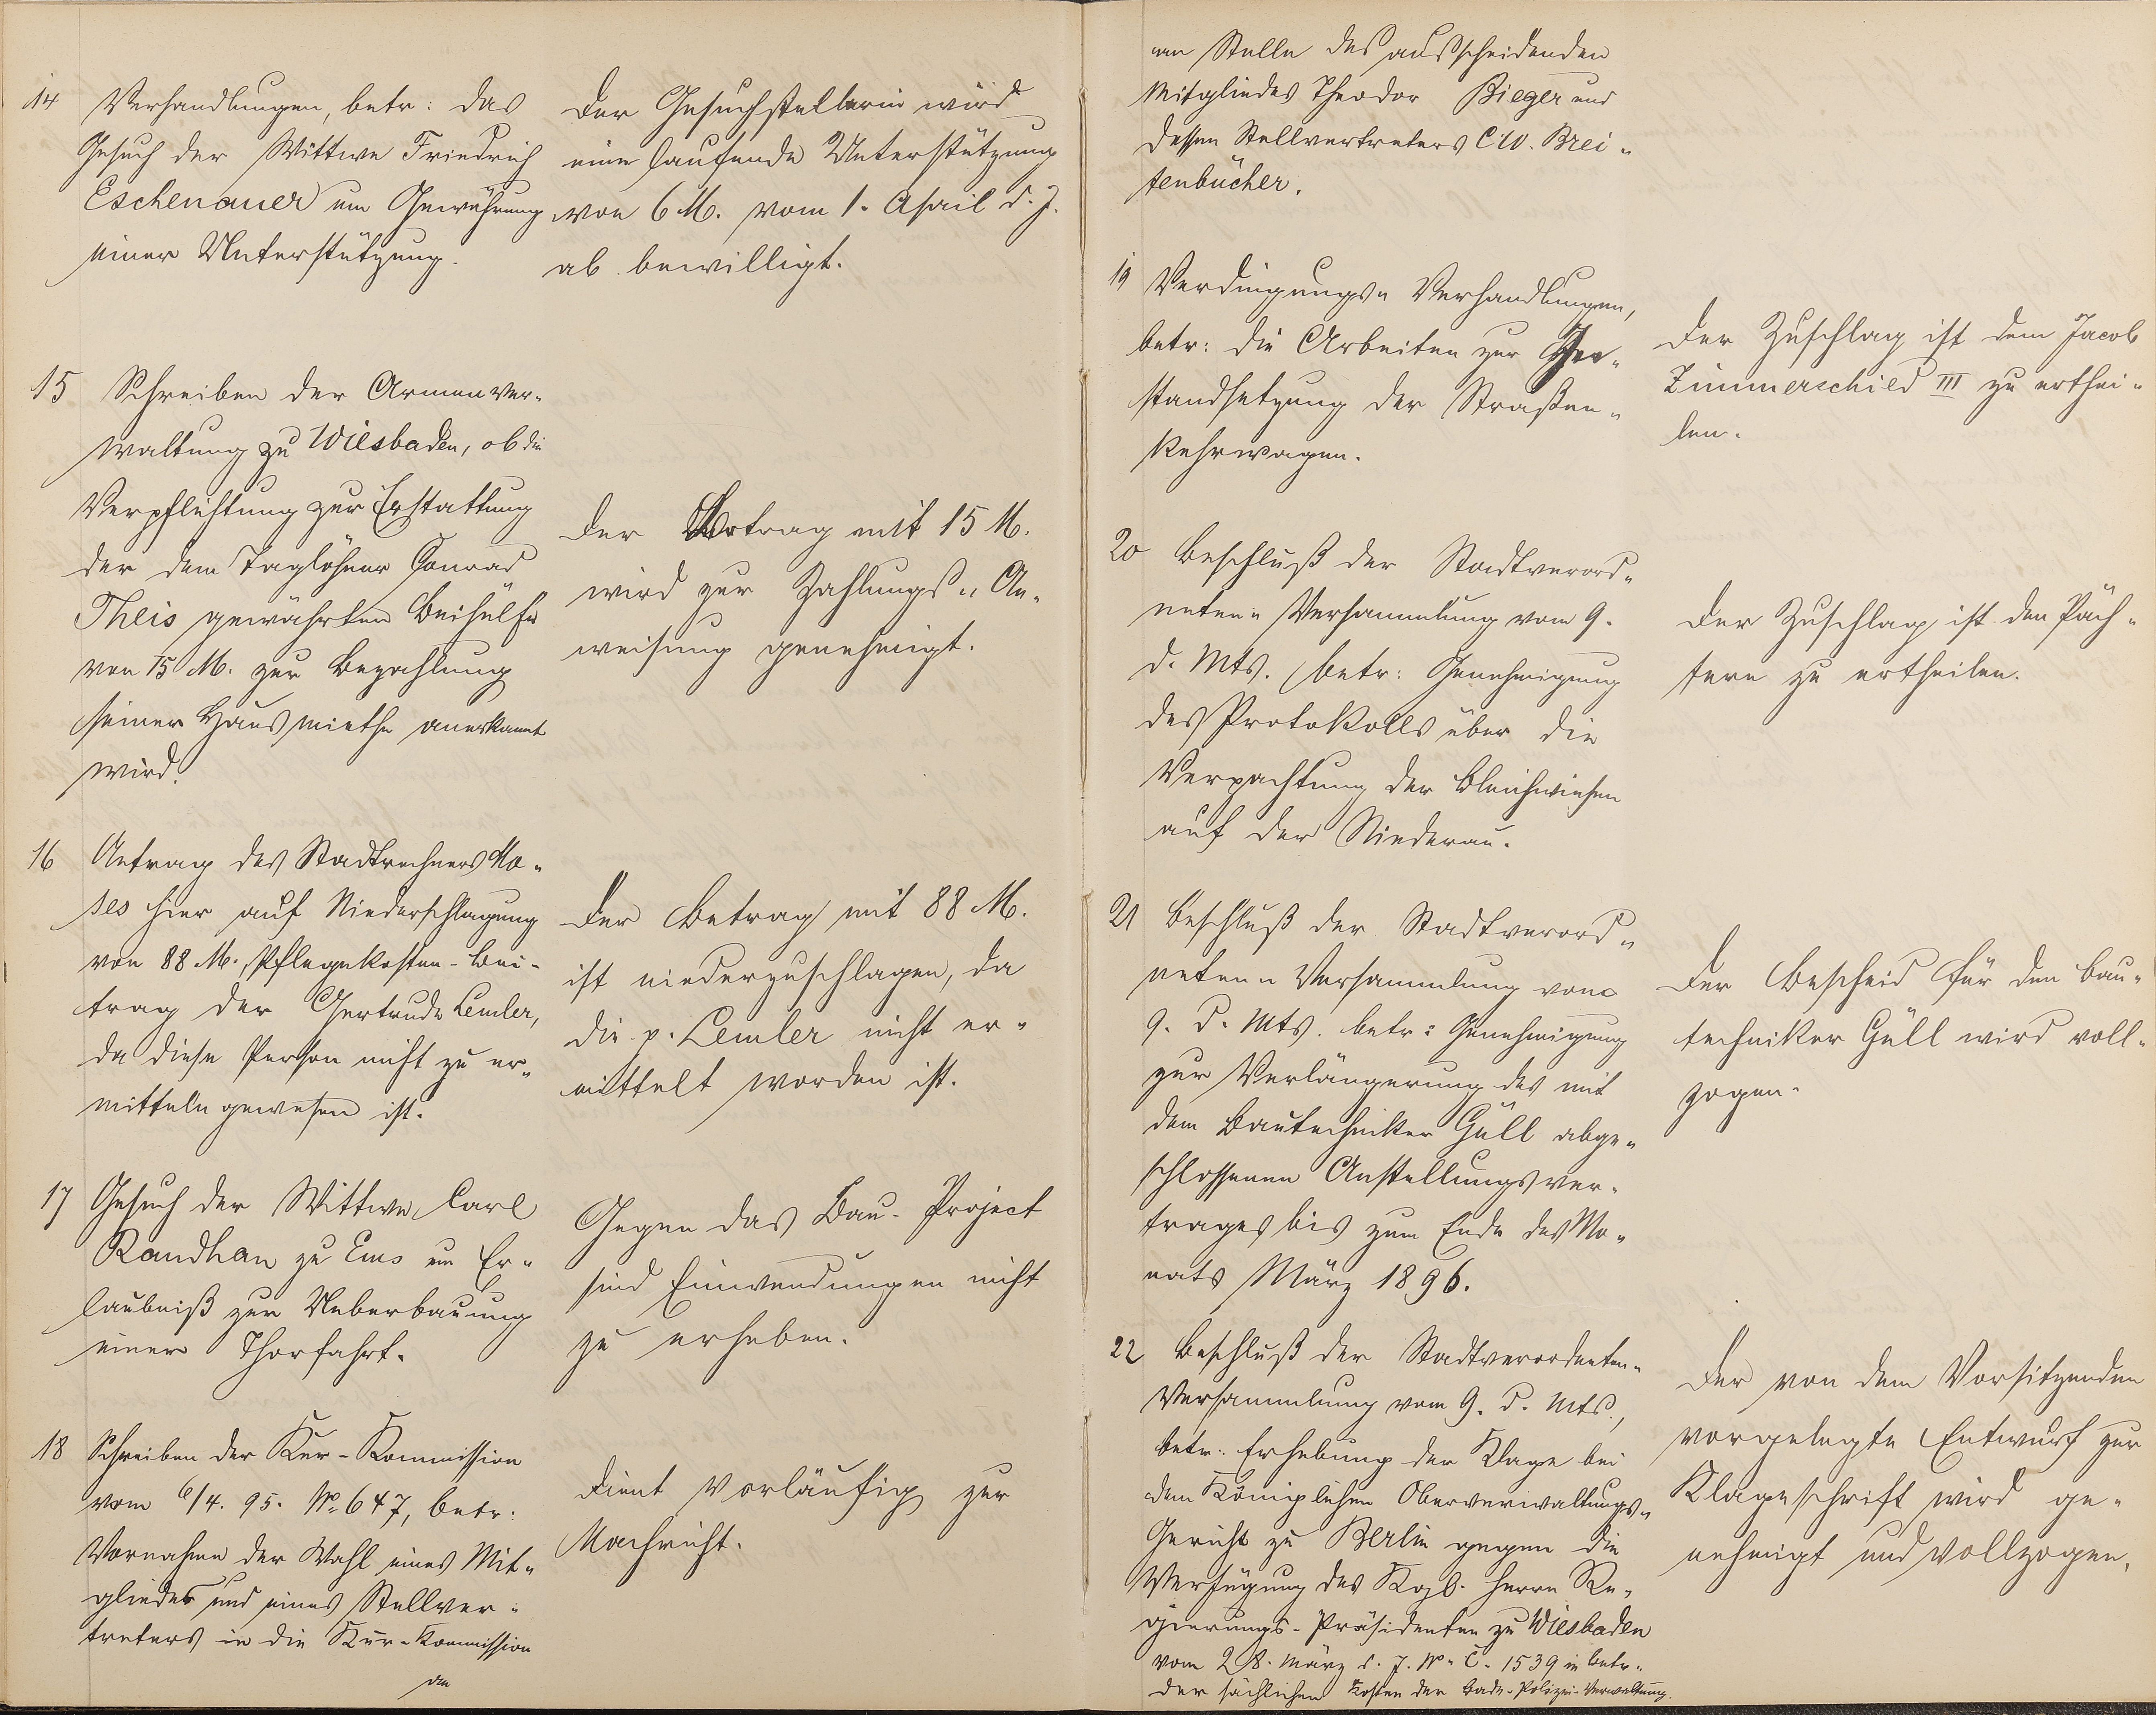 14 Verhandlungen, betr: das
Gesuch der Wittwe Friedrich
Eschenauer um Gewährung
einer Unterstützung.
Der Gesuchstellerin wird
eine laufende Unterstützung
von 6 M. vom 1. April d. J.
ab bewilligt.
15 Schreiben der Armenver-
waltung zu Wiesbaden, ob die
Verpflichtung zur Erstattung
der dem Taglöhner Conrad
Theis gewährten Beihülfe
von 15 M. zur Bezahlung
seiner Hausmiethe anerkannt
wird.
Der Betrag mit 15 M.
wird zur Zahlungs-An-
weisung genehmigt.
16 Antrag des Stadtrechners Mo-
ses hier auf Niederschlagung
von 88 M. Pflegekosten-Bei-
trag der Gertrude Lemler,
da diese Person nicht zu er-
mitteln gewesen ist.
Der Betrag mit 88 M.
ist niederzuschlagen, da
die p. Lemler nicht er-
mittelt worden ist.
17 Gesuch der Wittwe Carl
Randhan zu Ems um Er-
laubniß zur Ueberbauung
einer Thorfahrt.
Gegen das Bau-Project
sind Einwendungen nicht
zu erheben.
18 Schreiben der Kur-Kommission
vom 6/4. 95. No 647, betr:
Vornahme der Wahl eines Mit-
gliedes und eines Stellver-
treters in die Kur-Kommission
Dient vorläufig zur
Nachricht.
an
an Stelle des ausscheidenden
Mitgliedes Theodor Bieger und
dessen Stellvertreters C. W. Brei-
tenbücher.
19 Verdingungs-Verhandlungen,
betr: die Arbeiten zur
standsetzung der Straßen-
kehrwagen.
Der Zuschlag ist dem Jacob
Zimmerschied III zu erthei-
len.
20 Beschluß der Stadtverord-
neten-Versammlung vom 9.
d. Mts. betr: Genehmigung
des Protokolls über die
Verpachtung der Bleichwiesen
auf der Niederau.
Der Zuschlag ist den Päch-
tern zu ertheilen.
21 Beschluß der Stadtverord-
neten-Versammlung vom
9. d. Mts. betr: Genehmigung
zur Verlängerung des mit
dem Bautechniker Güll abge-
schlossenen Anstellungsver-
trages bis zum Ende des Mo-
nats März 1896.
Der Bescheid für den Bau-
techniker Güll wird voll-
zogen.
22 Beschluß der Stadtverordneten-
Versammlung vom 9. d. Mts.,
betr: Erhebung der Klage bei
dem Königlichen Oberverwaltungs-
Gericht zu Berlin gegen die
Verfügung des Kgl. Herrn Re-
gierungs-Präsidenten zu Wiesbaden
vom 28. März d. J. No C. 1539 in Betr.
der sächlichen Kosten der Bade-Polizei-Verwaltung.
Der von dem Vorsitzenden
vorgelegte Entwurf zur
Klageschrift wird ge-
nehmigt und vollzogen.